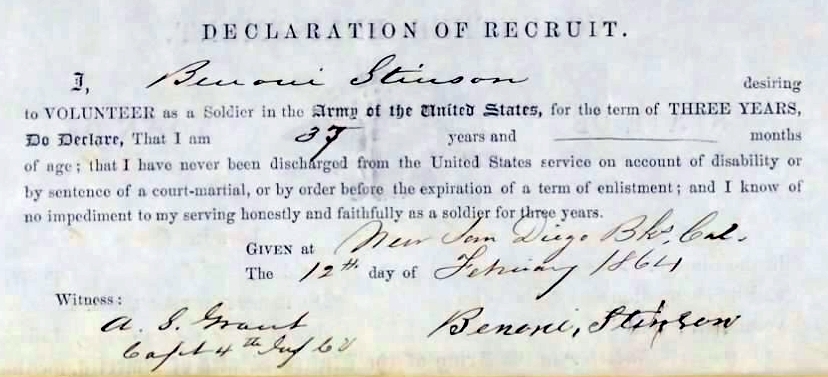 DECLARATION OF RECRUIT.
I, Benoni Stinson desiring
to VOLUNTEER as a Soldier in the Army of the United States, for the term of THREE YEARS,
Do Declare, That I am years and months
of age; that I have never been discharged from the United States service on account of disability or
by sentence of a court-martial, or by order before the expiration of a term of enlistment; and I know of
no impediment to my serving honestly and faithfully as a soldier for three years.
GIVEN at New San Diego Bks, Cal.
The 12th day of February 1864
Witness:
A. S. Grant Benoni, Stinson
Capt 4th Inf CV